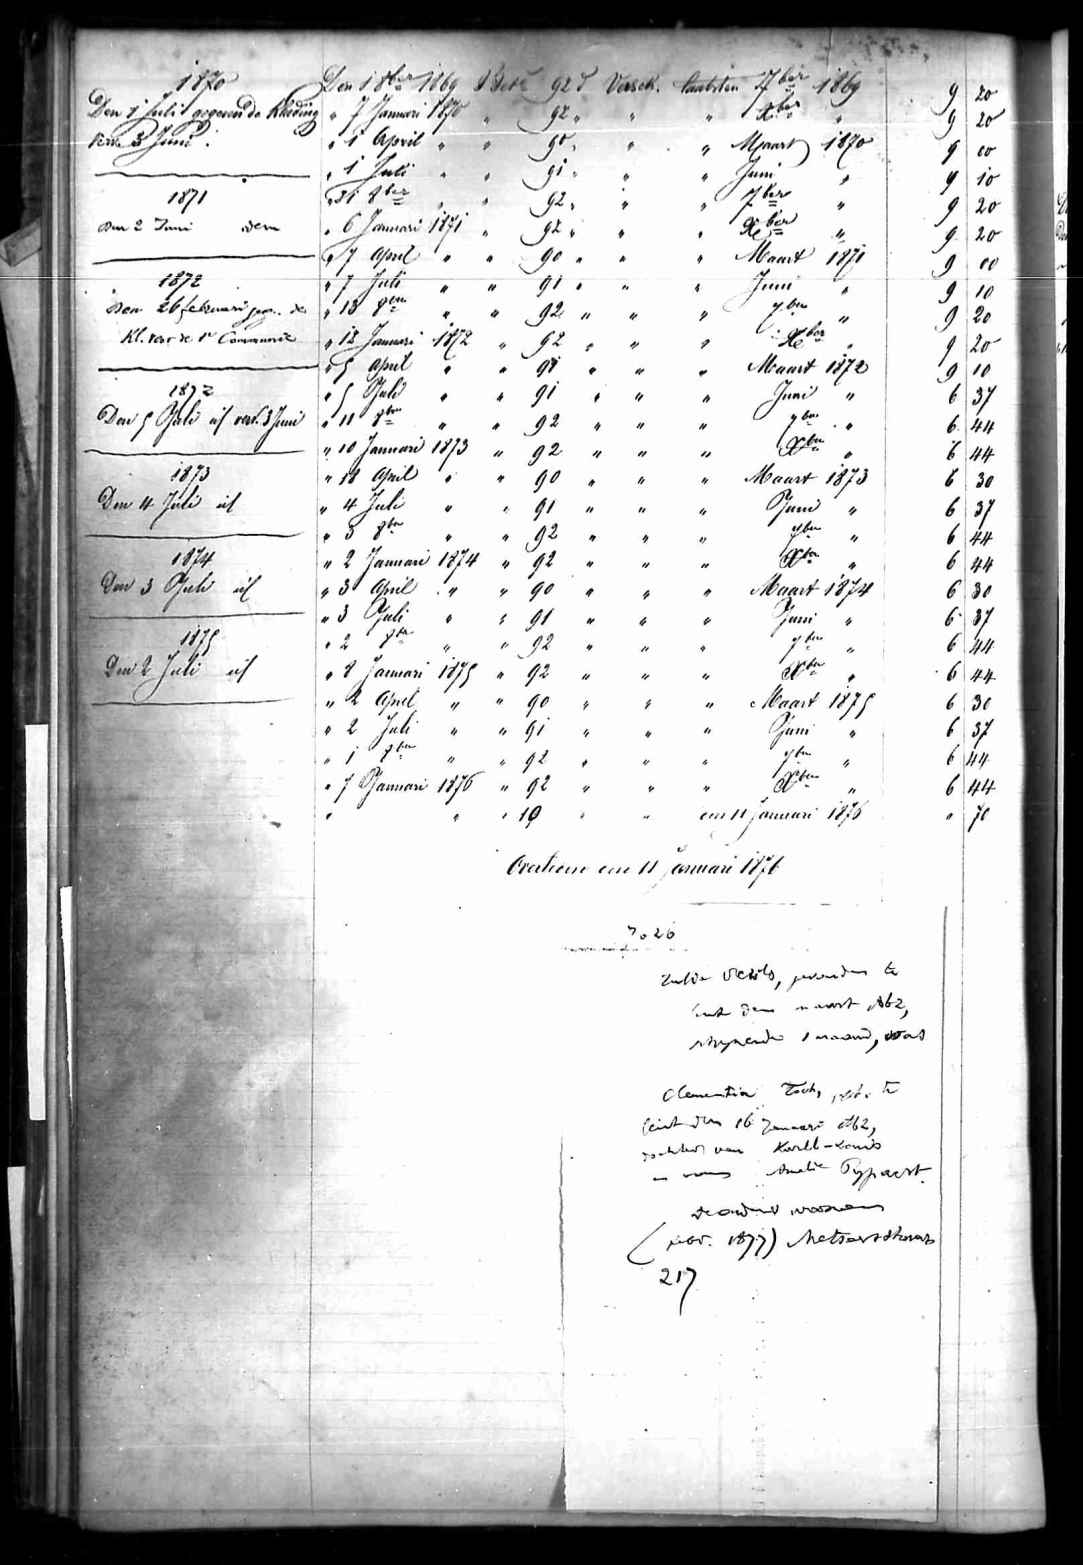 1870
Den 1 Juli gegeven de Kleeding
verv. 3 Juni.
1871
den 2 Juni idem
1872
Den 26 februari gegv. de
Kl. voor de 1e Communie
1872
Den 5 Juli id verv. 3 Juni
1873
Den 4 Juli id
1874
Den 3 Juli id
1875
Den 2 Juli id
Den 1 8ber 1869 Bet. 92 d Versch. laatsten 7ber 1869 9 20
" 7 Januari 1870 " 92 " " " Xber " 9 20
" 1 April " " 90 " " " Maart 1870 9 00
" 1 Juli " " 91 " " " Juni " 9 10
" 8ber " " 92 " " " 7ber " 9 20
" 6 Januari 1871 " 92 " " " Xber " 9 20
" 7 April " " 90 " " " Maart 1871 9 00
" 7 Juli " " 91 " " " Juni " 9 10
" 13 8ber " " 92 " " " 7ber " 9 20
" 12 Januari 1872 " 92 " " " Xber " 9 20
" 5 April " " 91 " " " Maart 1872 9 10
" 5 Juli " " 91 " " " Juni " 6 37
" 11 8ber " " 92 " " " 7ber " 6 44
" 10 Januari 1873 " 92 " " " Xber " 6 44
" 18 April " " 90 " " " Maart 1873 6 30
" 4 Juli " " 91 " " " Juni " 6 37
" 3 8ber " " 92 " " " 7ber " 6 44
" 2 Januari 1874 " 92 " " " Xber " 6 44
" 3 April " " 90 " " " Maart 1874 6 30
" 3 Juli " " 91 " " " Juni " 6 37
" 2 8ber " " 92 " " " 7ber " 6 44
" 8 Januari 1875 " 92 " " " Xber " 6 44
" 2 April " " 90 " " " Maart 1875 6 30
" 2 Juli " " 91 " " " Juni " 6 37
" 1 8ber " " 92 " " " 7ber " 6 44
" 7 Januari 1876 " 92 " " " Xber " 6 44
" " " 10 " " den 11 Januari 1876 " 70
Overleden den 11 Januari 1876
den maart 1862,
1 maand, was
Clementia te
Gent den 16 Januari 1862,
dochter van Karel-Louis
Amelie
(nov. 1877)
217